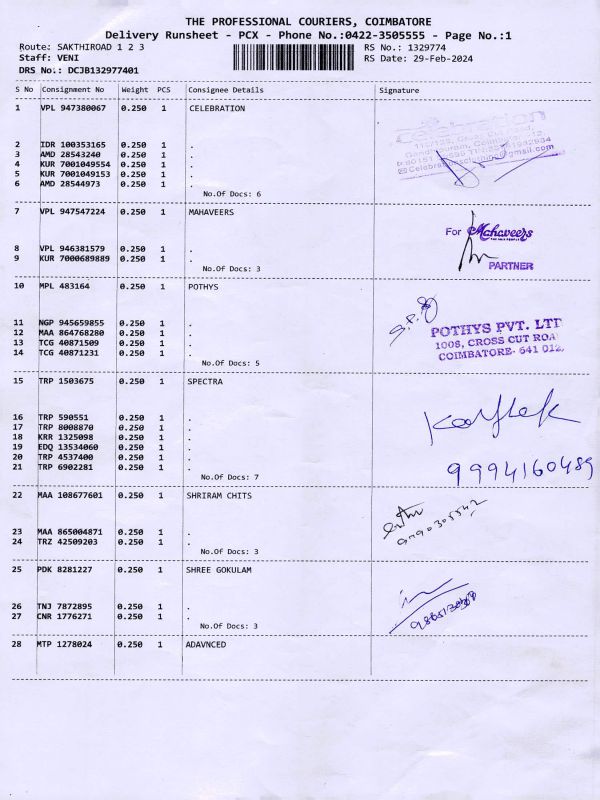 THE PROFESSIONAL COURIERS, COIMBATORE
Delivery Runsheet - PCX - Phone No.:0422-3505555 - Page No.:1
Route: SAKTHIROAD 1 2 3 RS No.: 1329774
Staff: VENI RS Date: 29-Feb-2024
DRS No.: DCJB132977401
S No Consignment No Weight PCS Consignee Details Signature
1 VPL 947380067 0.250 1 CELEBRATION
2 IDR 100353165 0.250 1 .
3 AMD 28543240 0.250 1 .
4 KUR 7001049554 0.250 1 .
5 KUR 7001049153 0.250 1 .
6 AMD 28544973 0.250 1 .
No.Of Docs: 6
7 VPL 947547224 0.250 1 MAHAVEERS
For Mahaveers
8 VPL 946381579 0.250 1 .
9 KUR 7000689889 0.250 1 .
PARTNER
No.Of Docs: 3
10 MPL 483164 0.250 1 POTHYS
11 NGP 945659855 0.250 1 .
POTHYS PVT. LTD
12 MAA 864768280 0.250 1 .
1008, CROSS CUT ROA
13 TCG 40871509 0.250 1 .
COIMBATORE- 641 012.
14 TCG 40871231 0.250 1 .
No.Of Docs: 5
15 TRP 1503675 0.250 1 SPECTRA
16 TRP 590551 0.250 1 .
17 TRP 8008870 0.250 1 .
18 KRR 1325098 0.250 1 .
19 EDQ 13534060 0.250 1 .
20 TRP 4537400 0.250 1 .
21 TRP 6902281 0.250 1 .
9994160489
No.Of Docs: 7
22 MAA 108677601 0.250 1 SHRIRAM CHITS
23 MAA 865004871 0.250 1 .
24 TRZ 42509203 0.250 1 .
No.Of Docs: 3
25 PDK 8281227 0.250 1 SHREE GOKULAM
26 TNJ 7872895 0.250 1 .
27 CNR 1776271 0.250 1 .
No.Of Docs: 3
28 MTP 1278024 0.250 1 ADAVNCED